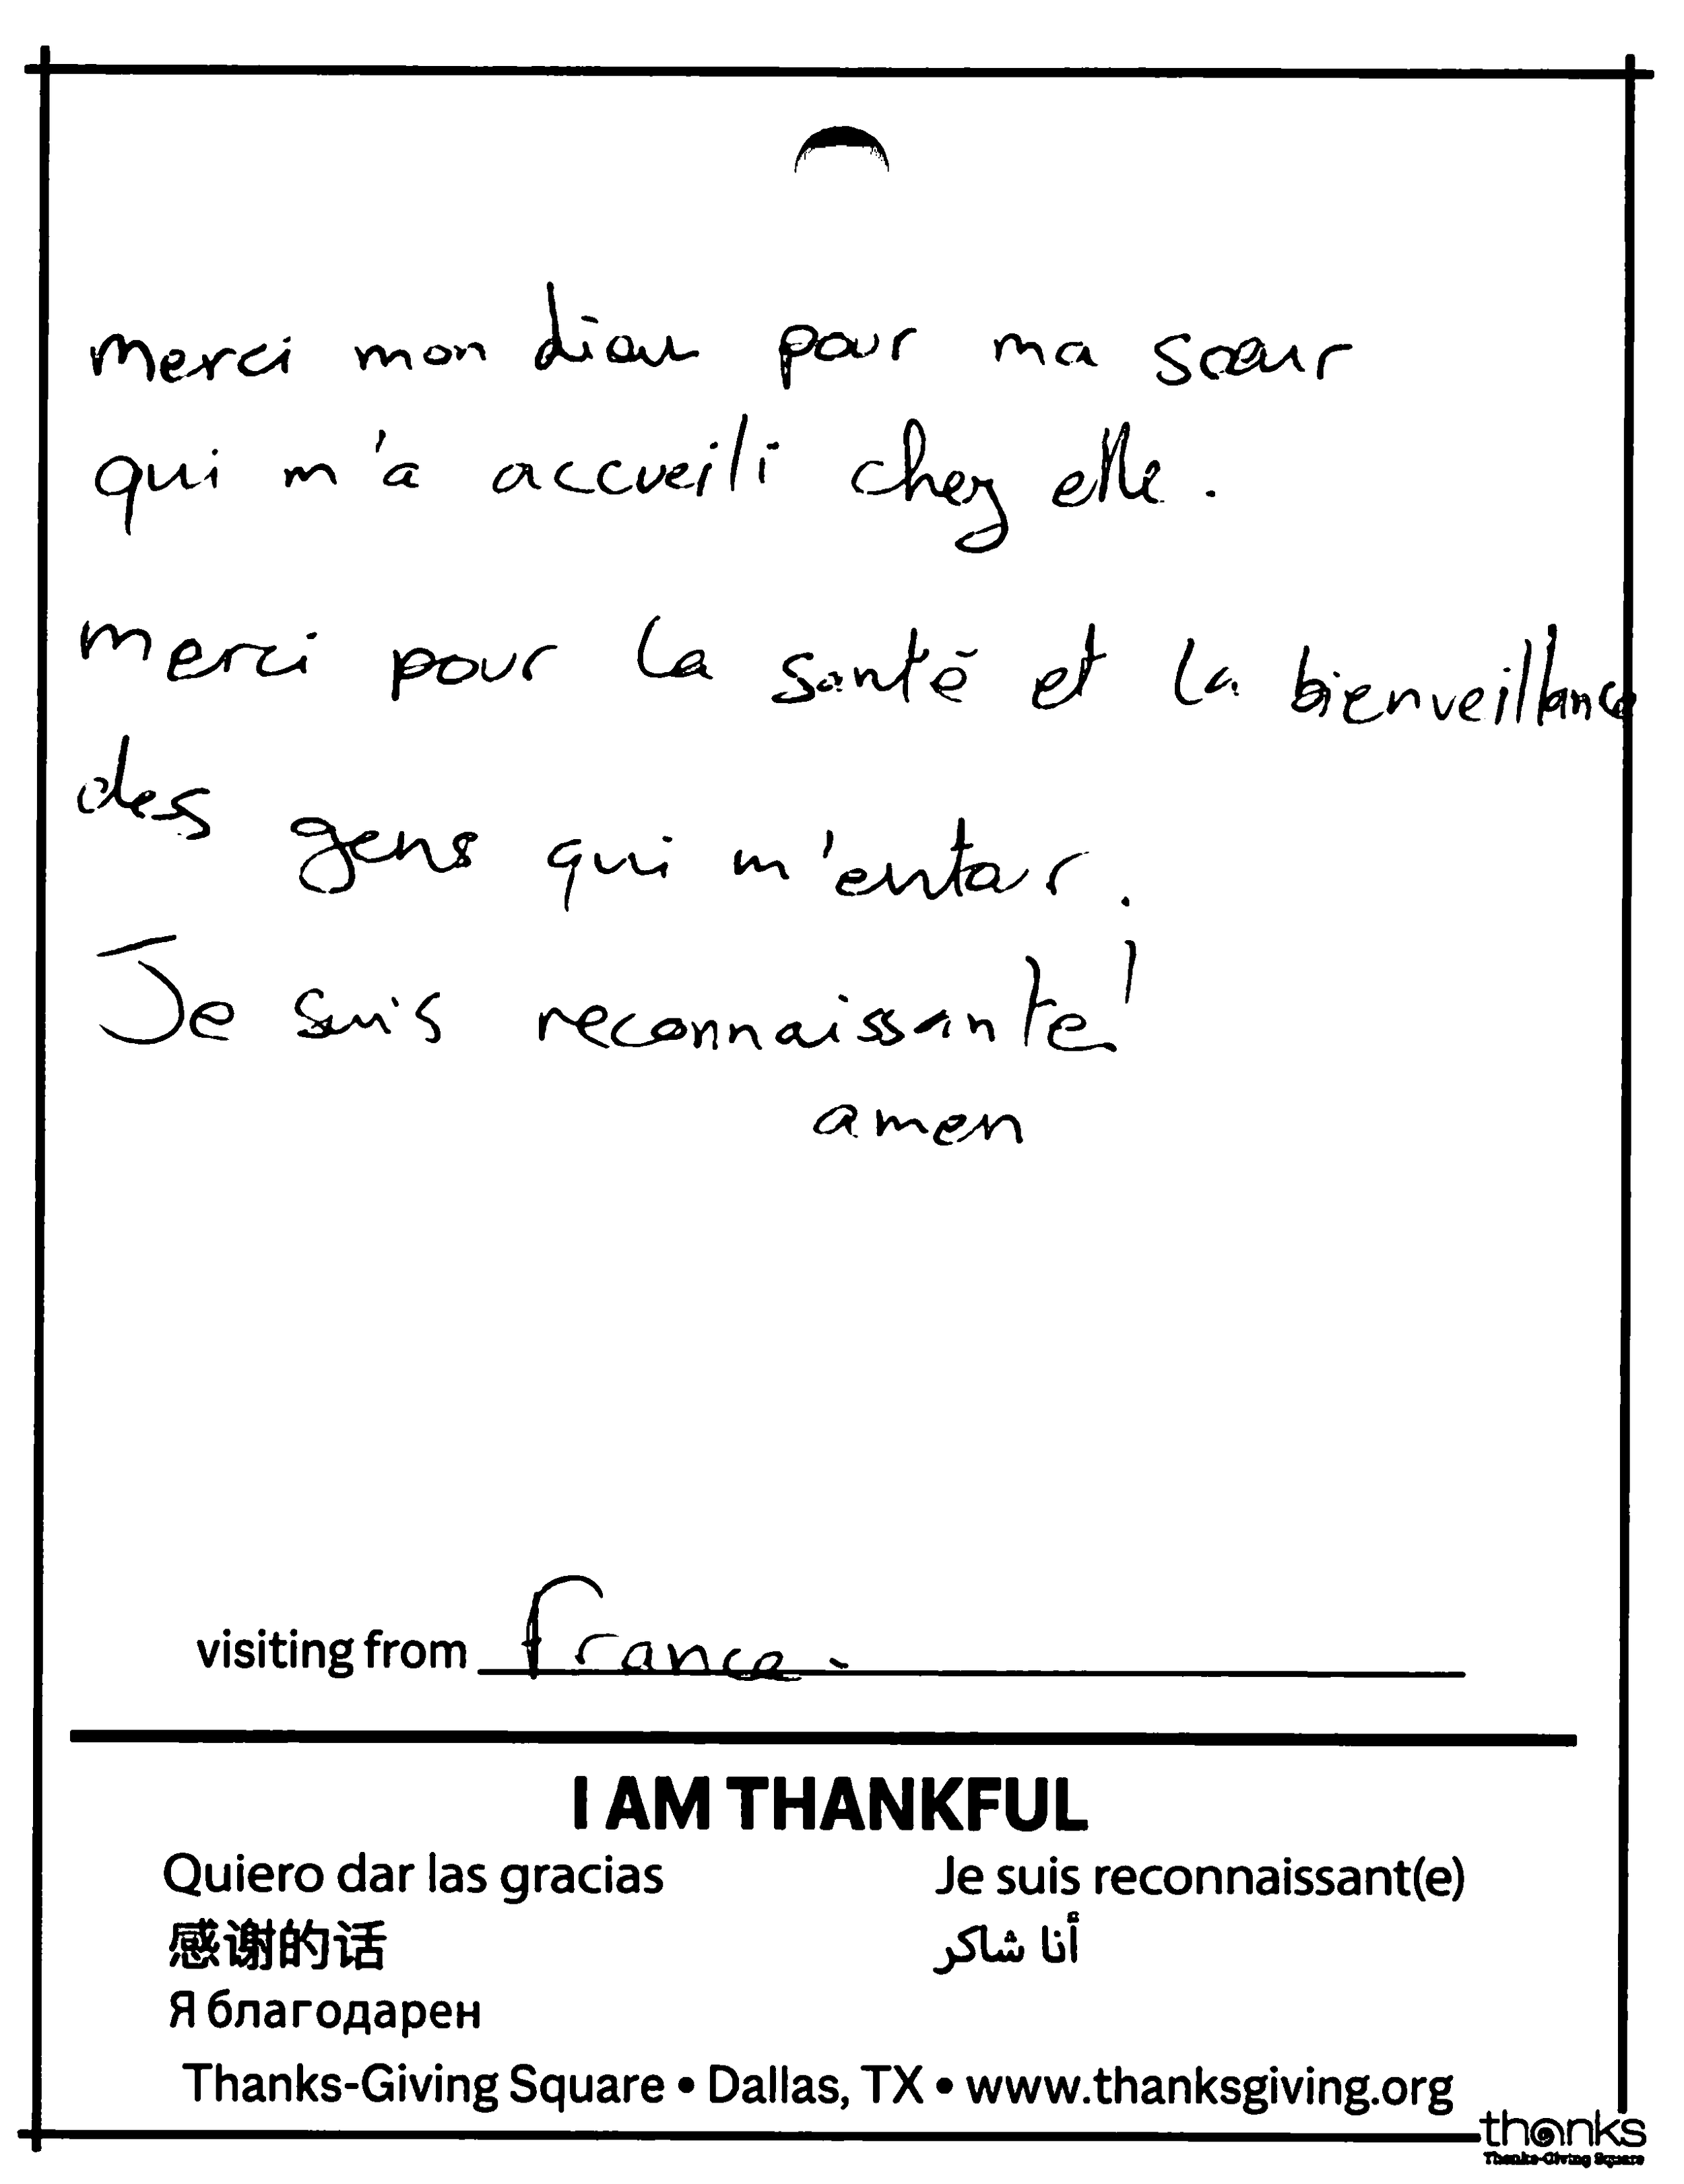 merci mon dieu pour ma sœur
qui m'a accueili chez elle.
merci pour la santé et la bienveillance
des gens qui m'entour.
Je suis reconnaissante!
amen
visiting from France.
I AM THANKFUL
Quiero dar las gracias
Je suis reconnaissant(e)
感谢的话
أنا شاكر
Я благодарен
Thanks-Giving Square • Dallas, TX • www.thanksgiving.org
thanks
Thanks-Giving Square